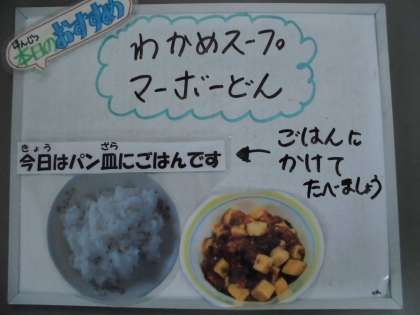 ほんじつ
本日のおすすめ
わかめスープ
マーボーどん
きょう ざら
今日はパン皿にごはんです
←ごはんに
かけて
たべましょう